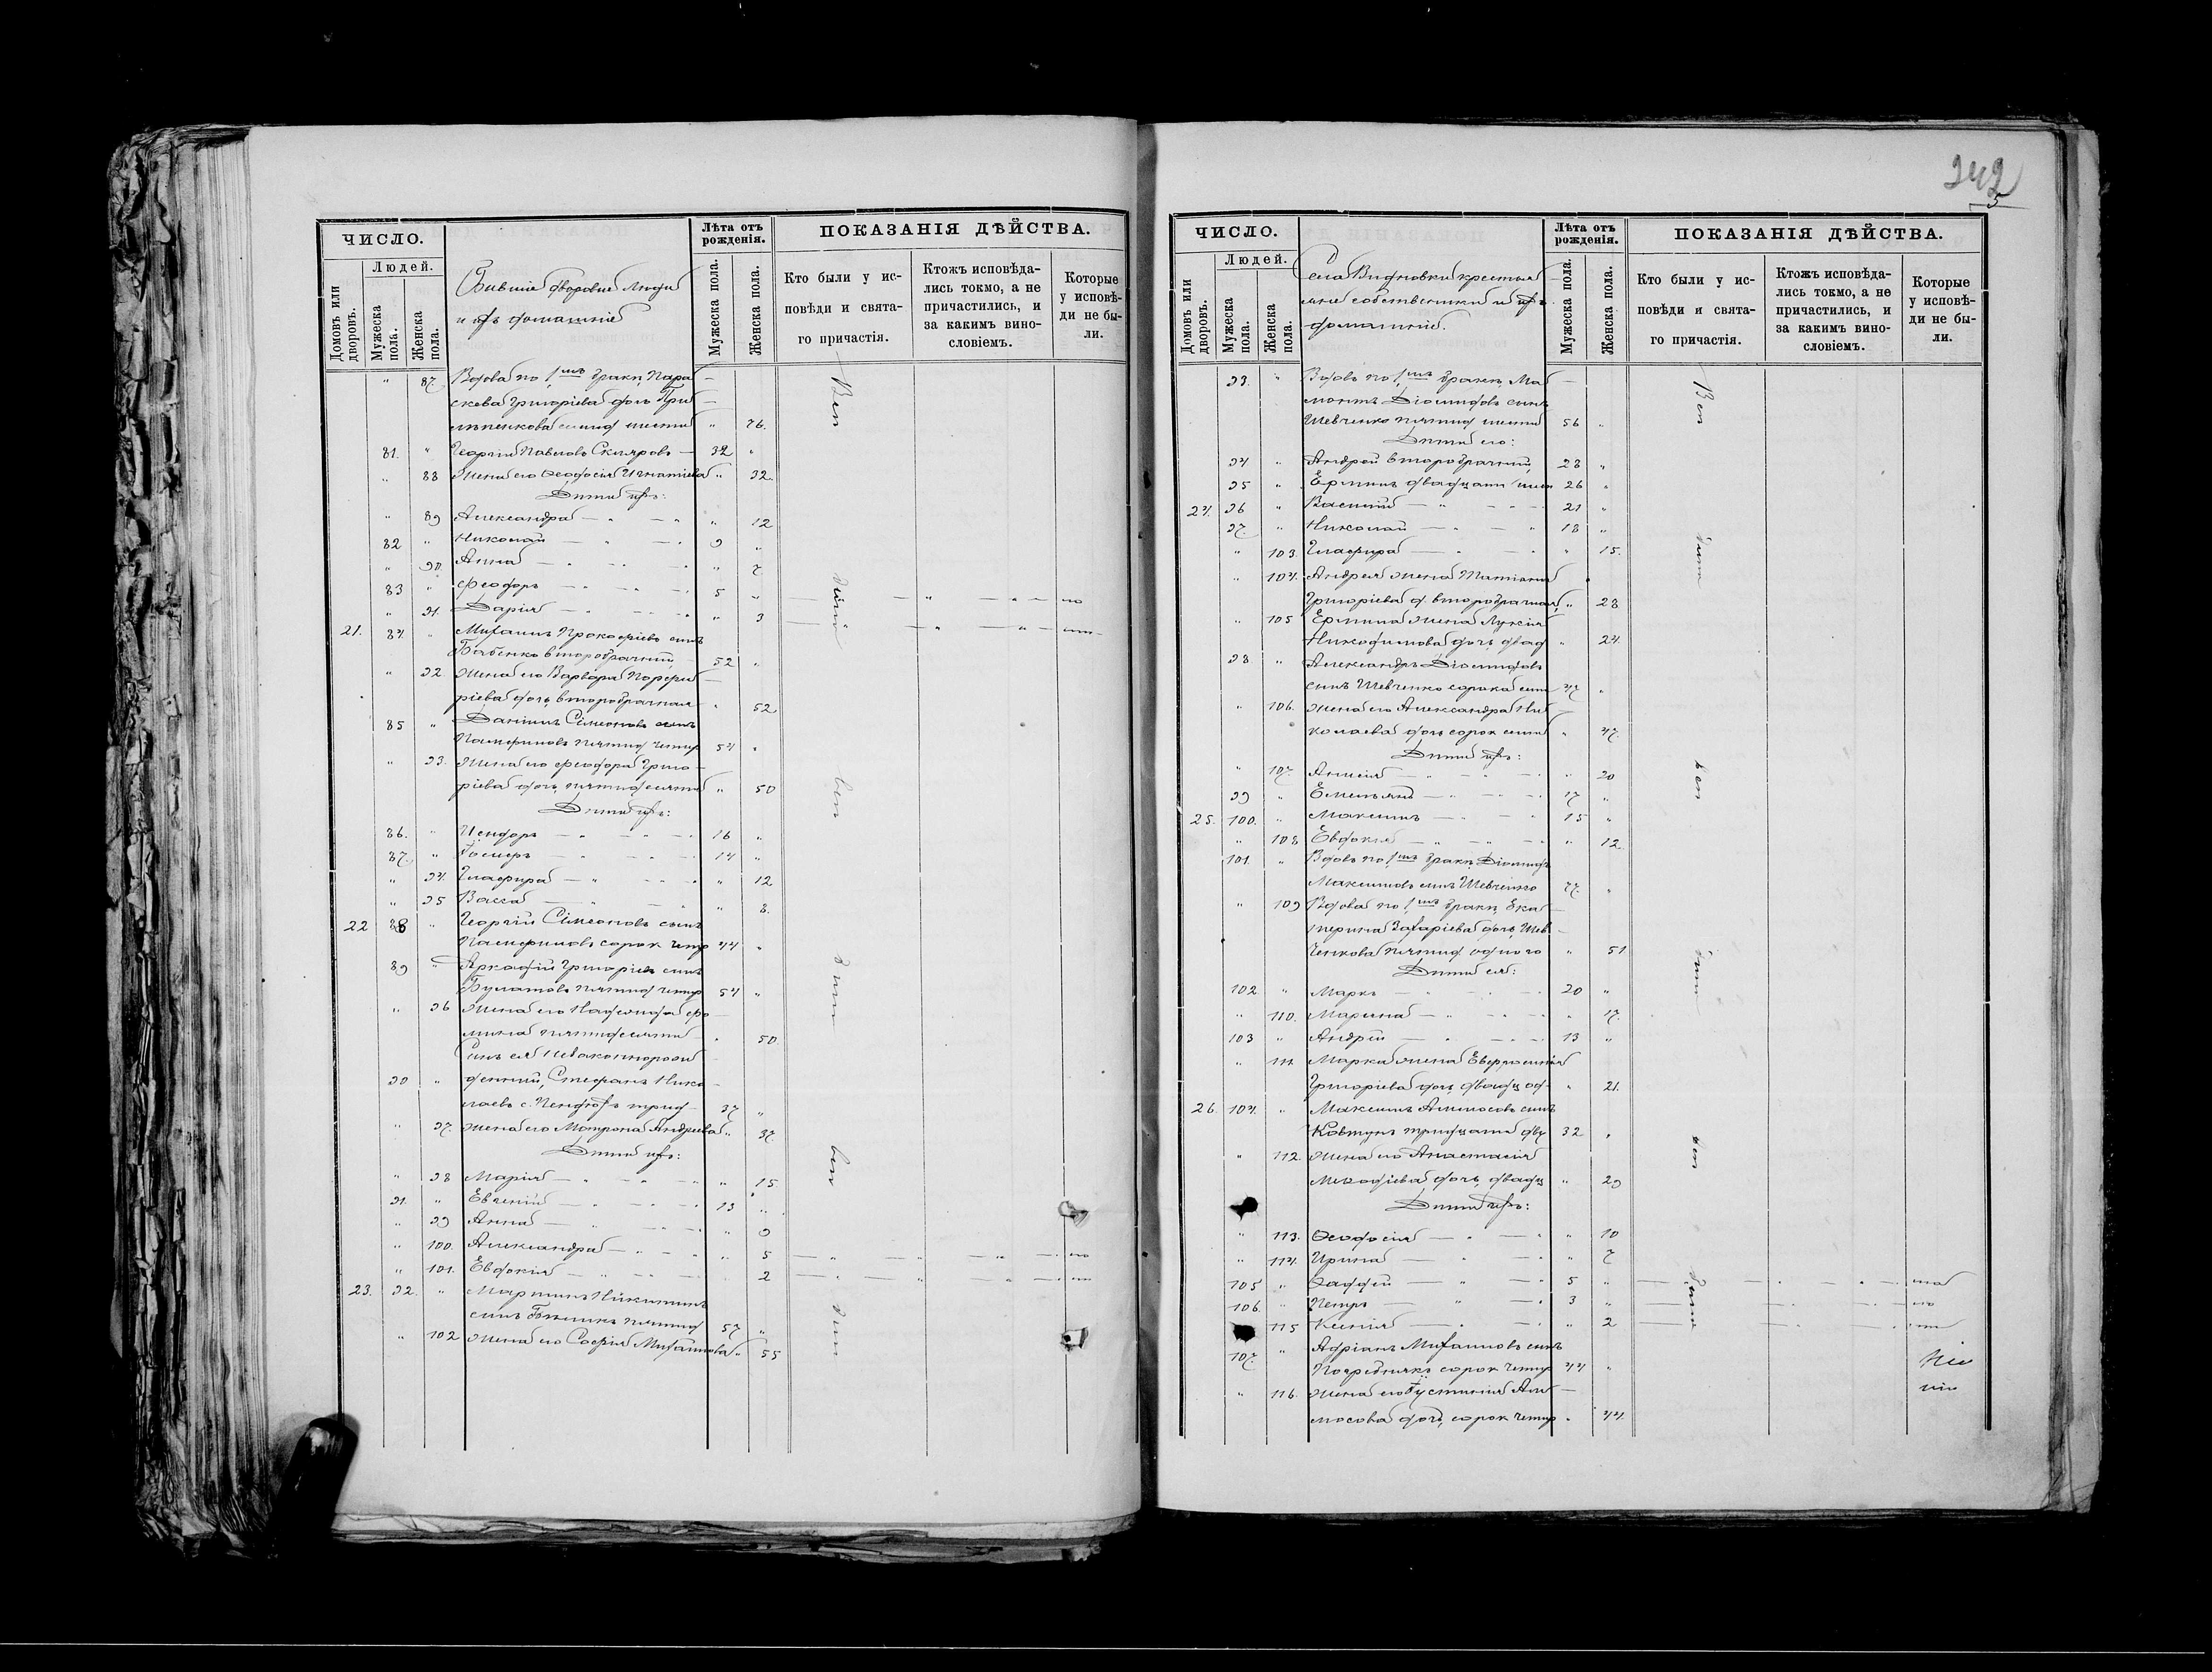 242
5
ЧИСЛО.
Людей.
Домовъ или дворовъ.
Мужеска пола.
Женска пола.
Бывшіе дворовые люди
и ихъ домашніе
Лѣта отъ рожденія.
Мужеска пола.
Женска пола.
ПОКАЗАНІЯ ДѢЙСТВА.
Кто были у исповѣди и святаго причастія.
Ктожъ исповѣдались токмо, а не причастились, и за какимъ винословіемъ.
Которые у исповѣди не были.
" 87. Вдова по 1мъ бракѣ Пара
скева Григоріева дочь При
шестъ " 76.
81. " Георгій Павловъ Скляровъ — 32 "
" 88 Жена его Ѳеодосія Игнатіева " 32.
Дѣти ихъ:
" 89 Александра " 12
82 " Николай 9 "
" 90. Анна " 7
83 " Феодоръ 5 "
" 91. Дарія " 3
21. 84. " Михаилъ Прокофіевъ сынъ
второбрачный 52 "
" 92 Жена его Варвара Порфи
ріева дочь второбрачная " 52
85 " Даніилъ Сімеоновъ сынъ
Памфиловъ пятид четыр 54 "
" 93. Жена его Феодора Григо
ріева дочь пятидесяти " 50
Дѣти ихъ:
86. " 16 "
87. " 14 "
" 94. Глафира " 12
" 95 Васса " 8.
22 88 " Георгій Сімеоновъ сынъ
Памфиловъ сорок четыр 44 "
89 " Аркадій Григоріев сынъ
Булатовъ пятид четыр 54 "
" 96 Жена его Надежда Фо
мина пятидесяти " 50
Сынъ ея незаконнорож
90 " денный, Стефанъ Нико
лаевъ 37 "
" 97. Жена его Матрона Андреева " 37.
Дѣти ихъ:
" 98 Марія " 15
91. " Евгеній 13 "
" 99 Анна " 9
" 100. Александра " 5
" 101. Евдокія " 2
23. 92. " Мартинъ Никитинъ
сынъ пятид 57 "
" 102 Жена его Софія Михаилова " 55
ЧИСЛО.
Людей.
Домовъ или дворовъ.
Мужеска пола.
Женска пола.
Села крестья
мне собственники и ихъ
домашніе.
Лѣта отъ рожденія.
Мужеска пола.
Женска пола.
ПОКАЗАНІЯ ДѢЙСТВА.
Кто были у исповѣди и святаго причастія.
Ктожъ исповѣдались токмо, а не причастились, и за какимъ винословіемъ.
Которые у исповѣди не были.
93. " Вдовъ по 1мъ бракѣ Ма
монтъ Діомидовъ сынъ
Шевченко пятид шести 56 "
Дѣти его:
94 " Андрей второбрачный 28 "
95 " Ермилъ двадцати шест 26 "
24. 96 " Василій 21 "
97. " Николай 18 "
" 103. Глафира " 15.
" 104. Андрея жена Татіана
Григоріева д. второбрачная " 28
" 105 Ермила жена Лукія
Никодимова дочь двад " 24.
98 " Александръ Діомидовъ
сынъ Шевченко сорока семи 47 "
" 106. Жена его Александра Ни
колаева дочь сорок семи " 47.
Дѣти ихъ:
" 107. Анисія " 20
99 " Емельянъ 17 "
25. 100. " Максимъ 15 "
" 108 Евдокія " 12
101. " Вдовъ по 1мъ бракѣ Діомидъ
Максимовъ сынъ Шевченко 77. "
" 109 Вдова по 1мъ бракѣ Ека
терина Захаріева дочь Шев
ченкова пятид одного " 51
Дѣти ея:
102. " Маркъ 20 "
" 110. Марина " 17.
103 " Андрій 13 "
" 111. Марка жена Евфросинія
Григоріева дочь двадц од " 21.
26. 104. " Максимъ Аммосовъ сынъ
Ковтунъ тридцати дву 32 "
" 112. Жена его Анастасія
Меѳодіева дочь двадц " 29
Дѣти ихъ:
" 113. Ѳеодосія " 10
" 114. Ирина " 7
105 " Фаддей 5 "
106. " Петръ 3 "
" 115 Ксенія " 2
107. " Адріанъ Михаиловъ сынъ
Погребнякъ сорок четыр 44 "
" 116. Жена его Іустинія Ам
мосова дочь сорок четыр " 44.